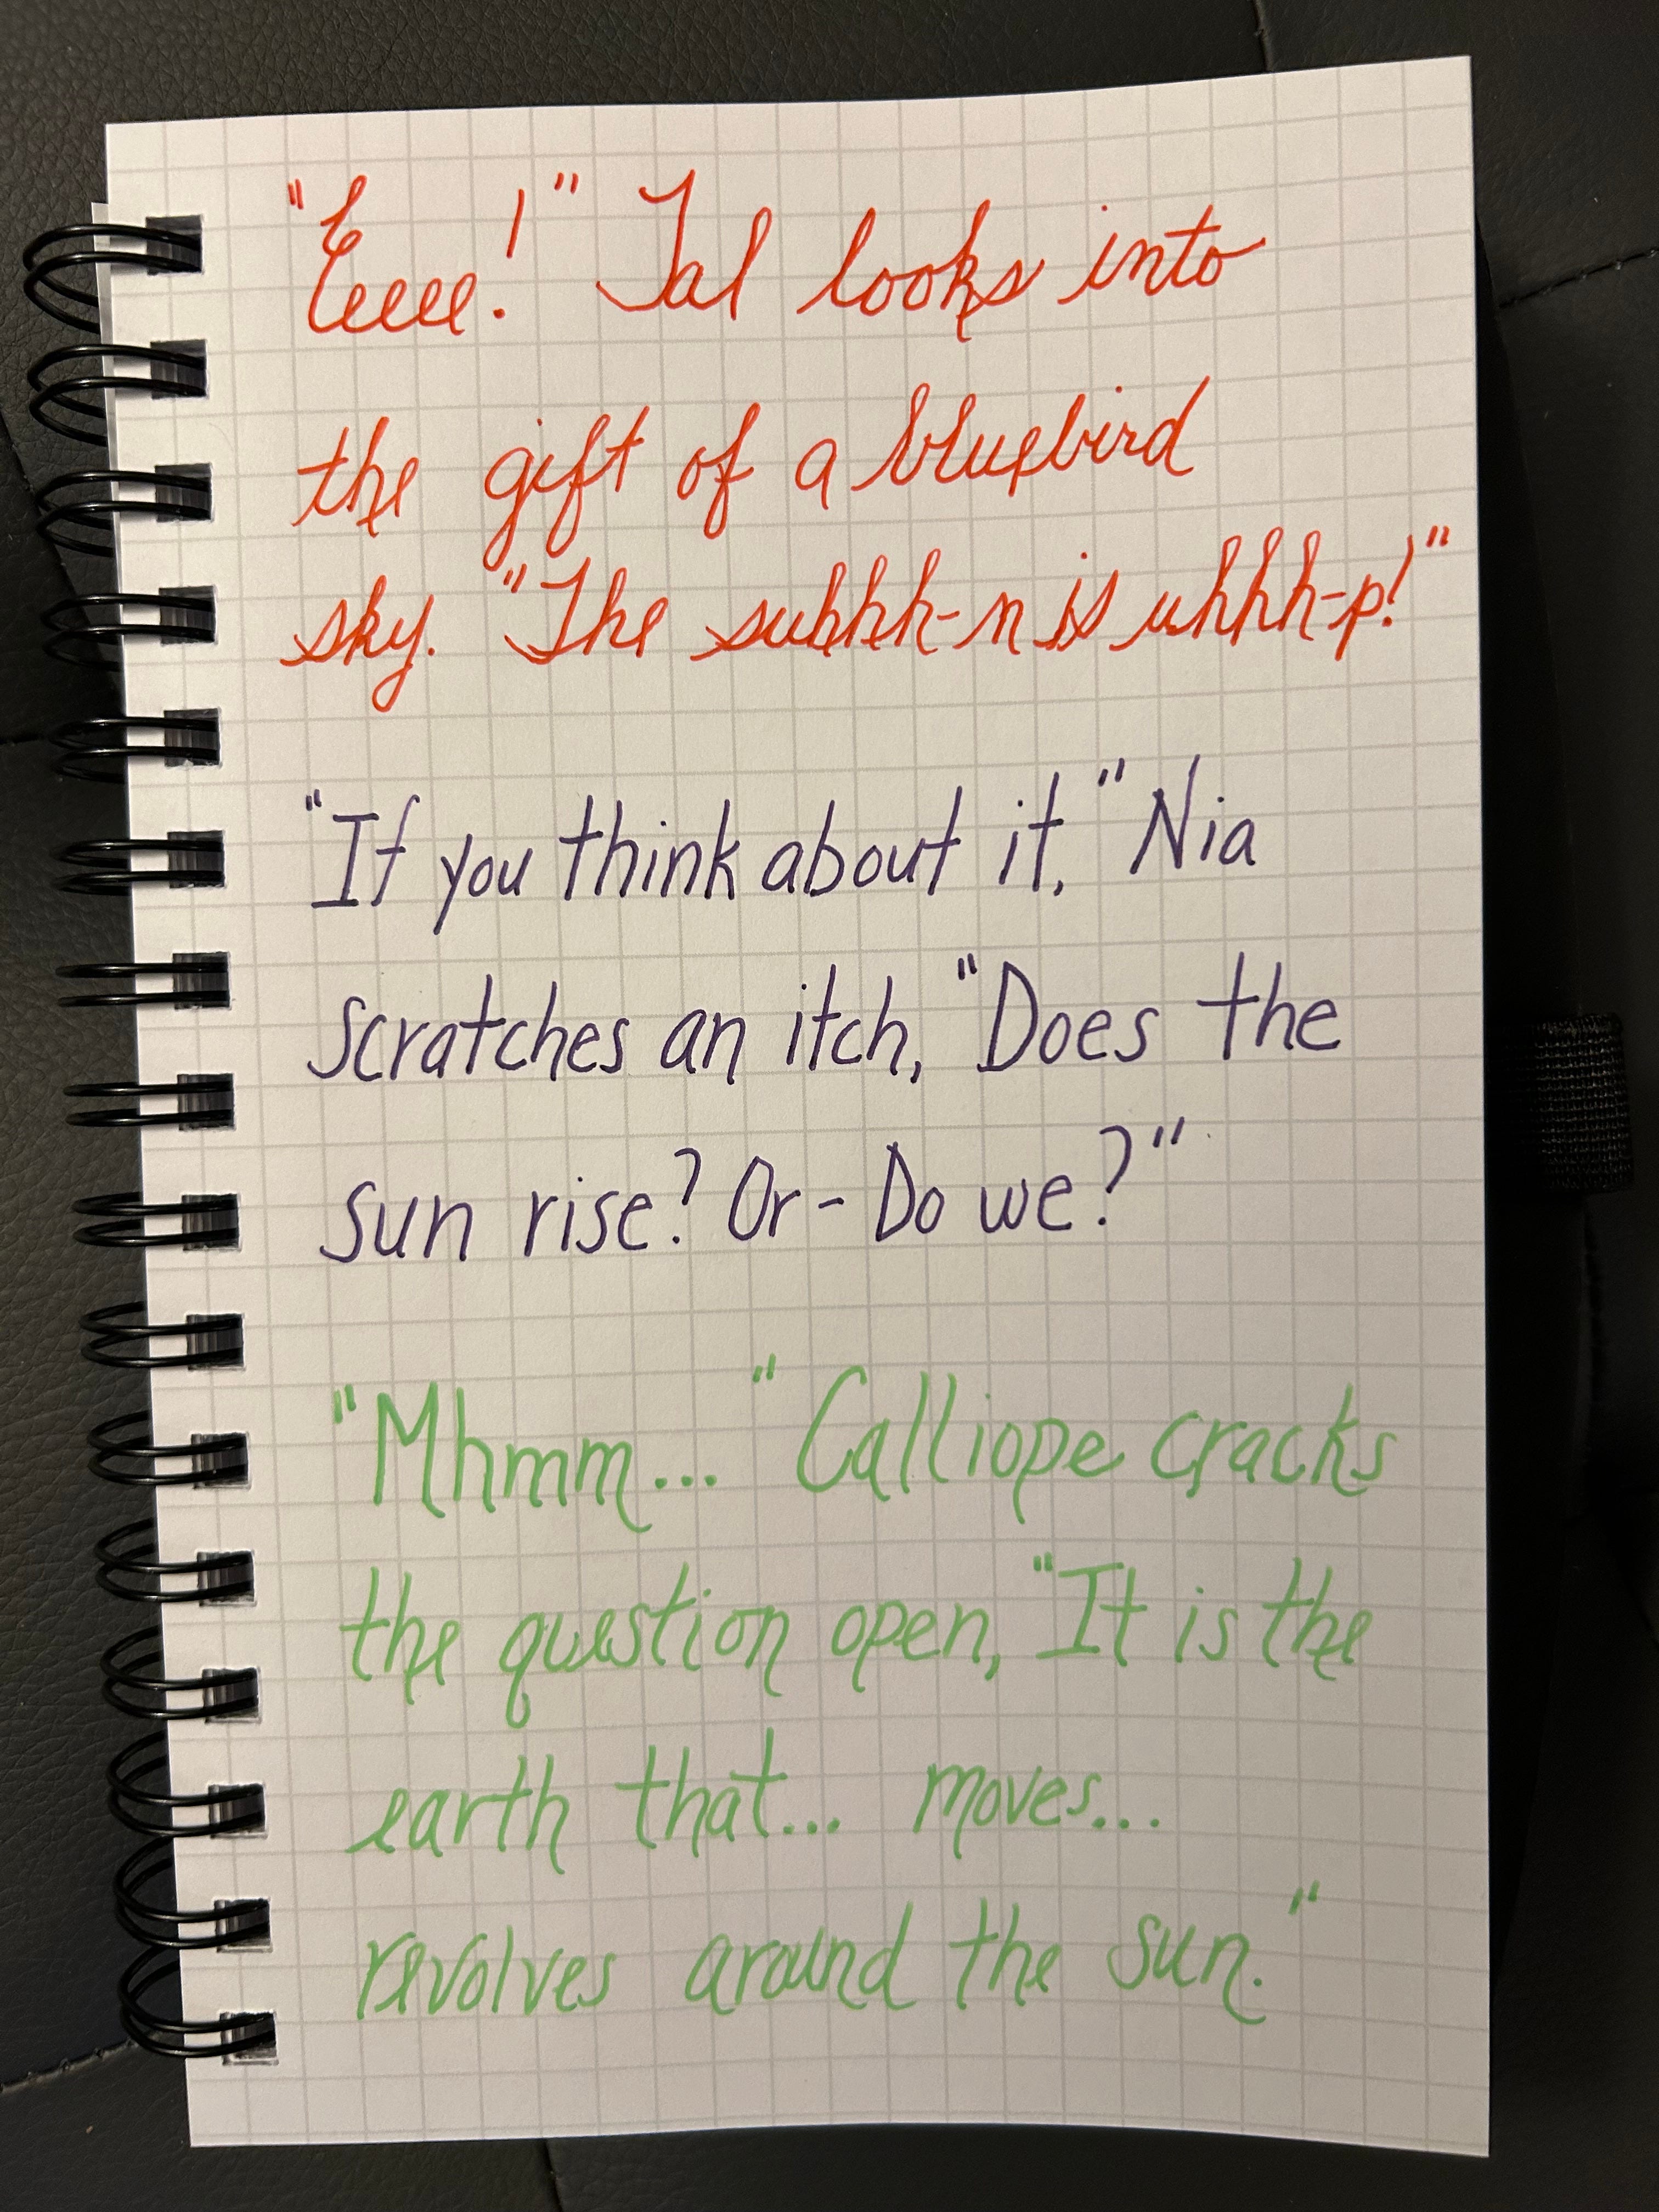 "Eeee!" Tal looks into
the gift of a bluebird
sky. "The suhhh-n is uhhh-p!"
"If you think about it," Nia
scratches an itch, "Does the
sun rise? Or - Do we?"
"Mhmm..." Calliope cracks
the question open, "It is the
earth that... moves...
revolves around the sun."